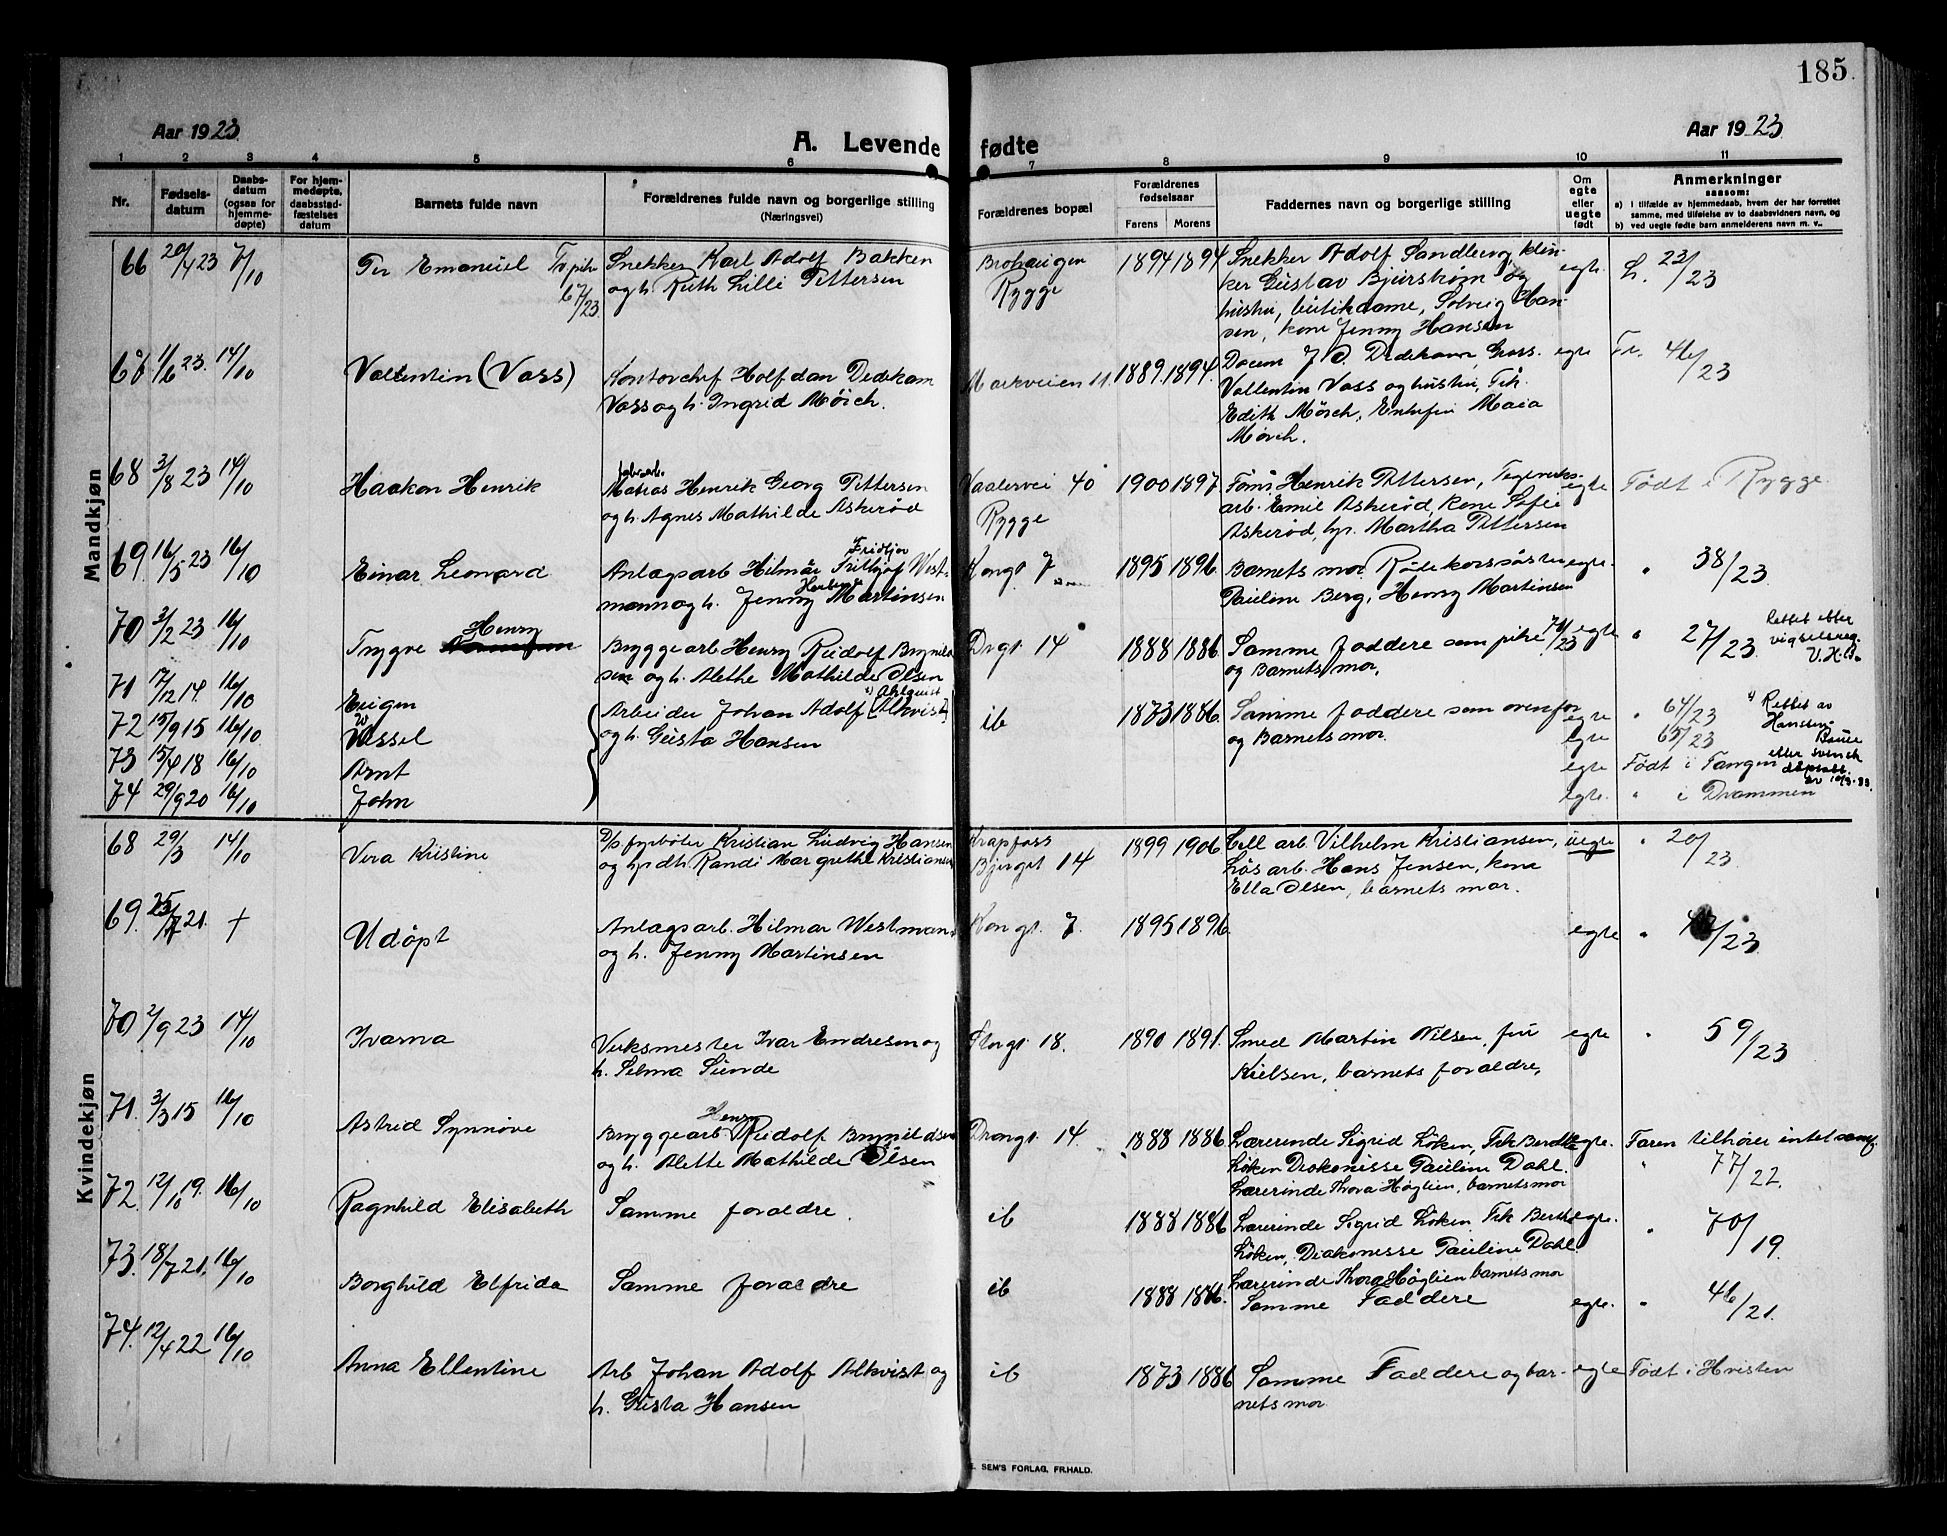 185.
Aar 1923 A. Levende fødte Aar 1923
1 2 3 4 5 6 7 8 9 10 11
Nr. Fødsels-datum Daabs-datum (ogsaa for hjemme-døpte) For hjem-medøpte, daabsstad-fæstelses datum Barnets fulde navn Forældrenes fulde navn og borgerlige stilling (Næringsvei) Forældrenes bopæl Forældrenes fødselsaar Farens Morens Faddernes navn og borgerlige stilling Om egte eller uegte født Anmerkninger saasom:
a) i tilfælde av hjemmedaab, hvem der har forrettet samme, med tilføielse av to daabsvidners navn, og
b) ved uegte fødte barn anmelderens navn m. v.
Mandkjøn
66 20/4 23 7/10 Per Emanuel Snekker Karl Adolf Bakken Brohaugen 1894 1894 Snekker Adolf Sandberg, klin- egte. L. 23/23
67/23. og h. Ruth Lilli Pettersen Rygge ker Gustav Bjurstrøm og
hustru, butikdame, Solveig Han-
sen, kone Jenny Hansen
1/6 23. 14/10 Vallentin (Vass) Kontorchef Halfdan Dedekam Markveien 11. 1889. 1894. Docent J. D. Dedekam, Gross. egte Fr. 46/23
Vass og h. Ingrid Mørch. Vallentin Vass og hustru, Frk.
Edith Mørch, Enkefru Maia
Mørch.
68 3/8 23 14/10 Haakon Henrik Matias Henrik Georg Pettersen Vaalervei 40 1900 1897 Tøms. Henrik Pettersen, Teglverks- egte Født i Rygge.
og h. Agnes Mathilde Askerød Rygge arb. Emil Askerød, kone Sofie
Askerød, Martha Pettersen
69. 16/5 23 16/10 Einar Leonard Anlægsarb Hilmar Fritjof Fridtjov West- Kongt 7 1895 1896 Barnets mor. Rødekorssøster egte. " 38/23.
mann og h. Jenny Martinsen Pauline Berg, Henry Martinsen
70 3/2 23 16/10 Trygve Henry Bryggearb Henry Rudolf Brynild- Drgt 14 1888 1886 Samme faddere som pike 71/23 egte " 27/23. Rettet efter vigselsreg. V.H.B.
sen og h. Alethe Mathilde Olsen og Barnets mor.
71 17/12 14. 16/10 Eugen Arbeider Johan Adolf [Alkvist] x) Ahlquist ib 1873 1886 Samme faddere som ovenfor egte " 64/23 x) Rettet av
72 15/9 15 16/10. Wessel og h. Gusta Hansen og Barnets mor. egte " 65/23 Hanssen-Bauer
73 15/4 18 16/10 Arnt egte Født i Tangen efter svensk
74 29/9 20 16/10 John egte. " i Drammen dåpsatt.
Kvindekjøn
68 29/3 14/10 Vera Kristine D/s fyrbøter Kristian Ludvig Hansen Krapfoss 1899 1906 Cell arb. Vilhelm Kristiansen, uegte " 20/23
og hpdtr. Randi Margrethe Kristiansen Bjergt 14 Løsarb. Hans Jensen, kone
Ella Olsen, barnets mor.
69. 25/7 21. + Udøpt Anlægsarb. Hilmar Westmann Kongt. 7. 1895 1896. egte "
og h. Jenny Martinsen
70 2/9 23 14/10 Ivarna Verksmester Ivar Endresen og Storgt 18. 1890 1891. Smed Martin Nilsen, fru egte " 59/23
h. Selma Sunde Nielsen, barnets foraldre,
71. 3/3 15 16/10 Astrid Synnøve Bryggearb Henry Rudolf Brynildsen Drongt 14. 1888 1886 Lærerinde Sigrid Løken, Frk Berth egte. Faren tilhører intet samf.
og h. Alette Mathilde Olsen Løken Diakonisse Pauline Dahl. " 77/22.
Lærerinde Thora Høglien, barnets mor
72. 12/10 19. 16/10 Ragnhild Elisabeth Samme foraldre. ib 1888 1886 Lærerinde Sigrid Løken, Frk Bertha egte. " 70/19.
Løken, Diakonisse Pauline Dahl.
Lærerinde Thora Høglien barnets mor
73. 18/7 21. 16/10 Borghild Elfrida Samme foraldre ib 1888 1886. Samme Faddere egte. " 46/21.
74. 12/4 22 16/10 Anna Ellentine Arb Johan Adolf Alkvist og ib 1873 1886 Samme Faddere og bar- egte Født i Hvisten
h. Gusta Hansen nets mor
E. SEM'S FORLAG, FR.HALD.